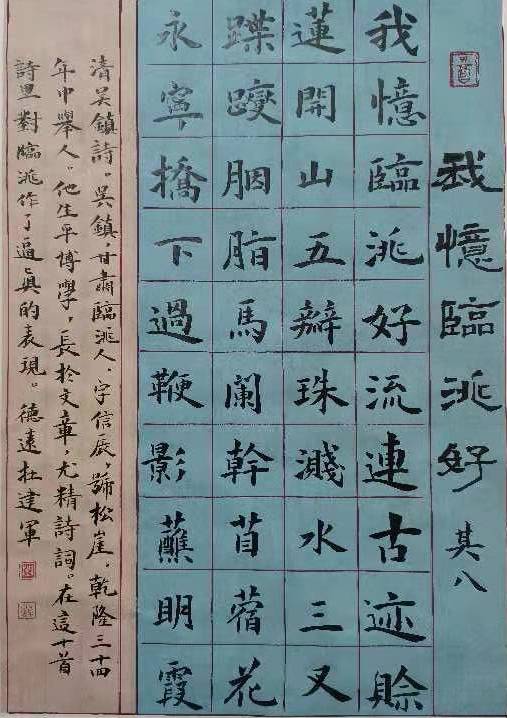 我憶臨洮好 其八
我憶臨洮好流連古迹賒
蓮開山五瓣珠濺水三叉
蹀躞胭脂馬闌幹苜蓿花
永寧橋下過鞭影蘸明霞
清吳鎮詩。吳鎮，甘肅臨洮人、字信辰，號松崖，乾隆三十四
年中舉人。他生平博學，長於文章，尤精詩詞。在這十首
詩里對臨洮作了逼真的表現。德遠杜建軍